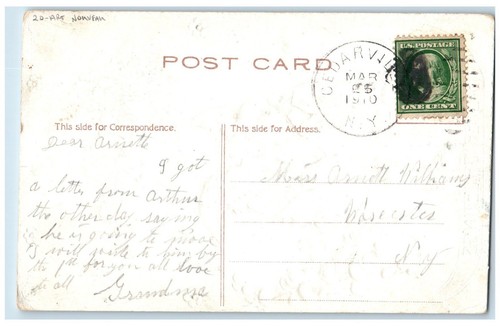 20-ART NOUVEAU
POST CARD
U.S. POSTAGE
ONE CENT
CEDARVILLE
MAR
25
1910
N.Y.
This side for Correspondence.
This side for Address.
Dear
I got
a letter from Arthur
the other day saying
he is going to move
I will write to him by
the 1st for you all love
to all
Grandma
Miss Williams
Worcester
N.Y.